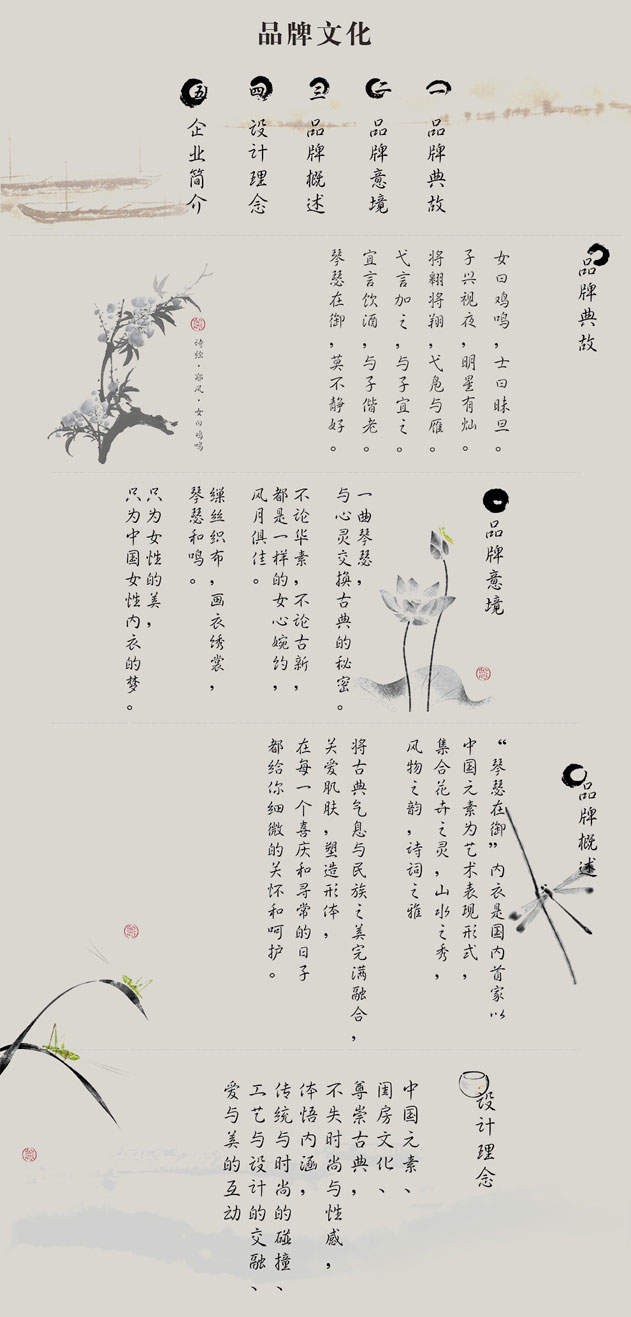 品牌文化
一 品牌典故
二 品牌意境
三 品牌概述
四 设计理念
五 企业简介
品牌典故
女曰鸡鸣，士曰昧旦。
子兴视夜，明星有灿。
将翱将翔，弋凫与雁。
弋言加之，与子宜之。
宜言饮酒，与子偕老。
琴瑟在御，莫不静好。
诗经·郑风·女曰鸡鸣
品牌意境
一曲琴瑟，
与心灵交换古典的秘密。
不论华素，不论古新，
都是一样的女心婉约，
风月俱佳。
缫丝织布，画衣绣裳，
琴瑟和鸣。
只为女性的美，
只为中国女性内衣的梦。
品牌概述
“琴瑟在御”内衣是国内首家以
中国元素为艺术表现形式，
集合花卉之灵，山水之秀，
风物之韵，诗词之雅
将古典气息与民族之美完满融合，
关爱肌肤，塑造形体，
在每一个喜庆和寻常的日子
都给你细微的关怀和呵护。
设计理念
中国元素、
闺房文化、
尊崇古典，
不失时尚与性感，
体悟内涵，
传统与时尚的碰撞、
工艺与设计的交融、
爱与美的互动